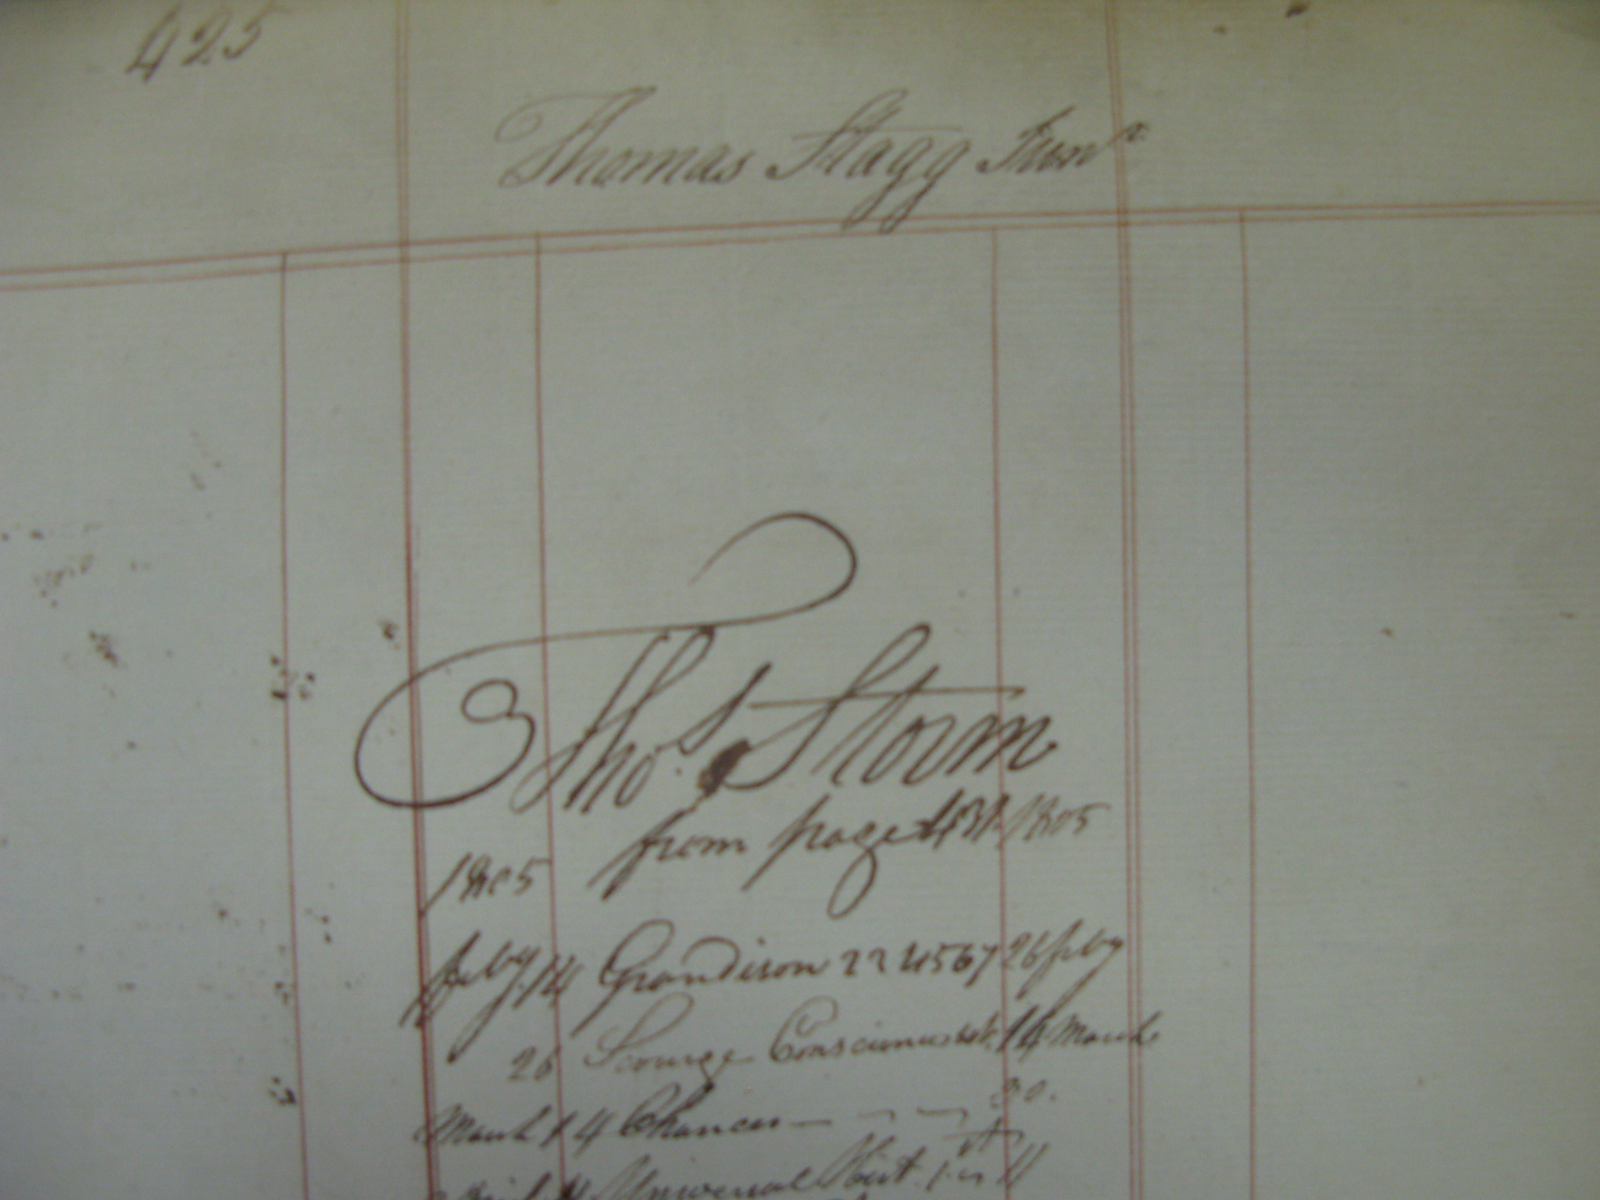 425
Thomas Stagg Junr
Thos Storm
from page 431 1805
1805
feby 14 Grandison 2 2 4 5 6 7 26 feby
26 Scourge Consciousst 14 March
March 14 Chances — — — 30.
14 Universal Hist. 11